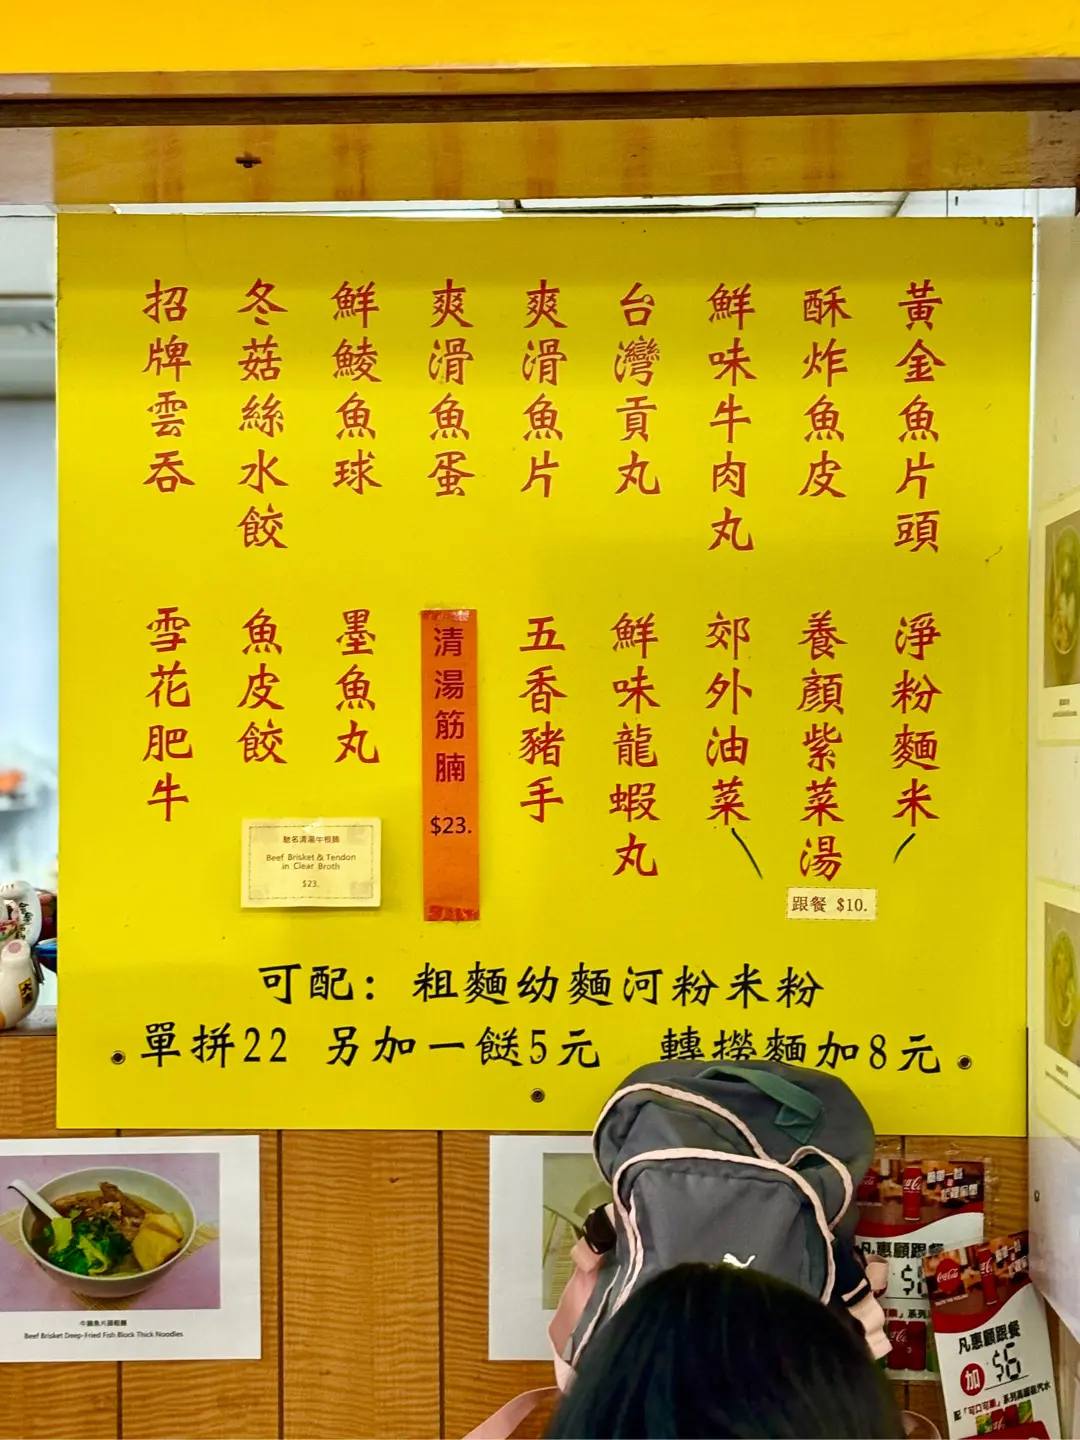 招牌雲吞
冬菇絲水餃
鮮鯪魚球
爽滑魚蛋
爽滑魚片
台灣貢丸
鮮味牛肉丸
酥炸魚皮
黃金魚片頭
雪花肥牛
魚皮餃
墨魚丸
清湯筋腩
$23.
五香豬手
鮮味龍蝦丸
郊外油菜
養顏紫菜湯
淨粉麵米
馳名清湯牛根腩
Beef Brisket & Tendon
in Clear Broth
$23.
跟餐 $10.
可配：粗麵幼麵河粉米粉
單拼22 另加一餸5元 轉撈麵加8元
牛腩魚片頭粗麵
Beef Brisket Deep-Fried Fish Block Thick Noodles
凡惠顧跟餐
凡惠顧跟餐
加 $6
配「可口可樂」系列高罐裝汽水